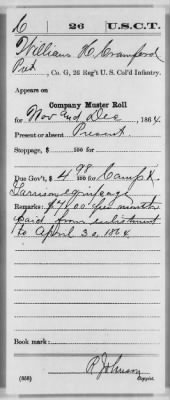 C | 26 | U.S.C.T.
William H. Crawford
Pvt, Co. G, 26 Reg't U. S. Col'd Infantry.
Appears on
Company Muster Roll
for Nov and Dec, 1864.
Present or absent Present.
Stoppage, $ 100 for
Due Gov't, $ 4 98/100 for Camp &
Garrison equipage
Remarks: $7.00 per month
paid from enlistment
to April 30, 1864.
Book mark:
R Johnson
(358) Copyist.